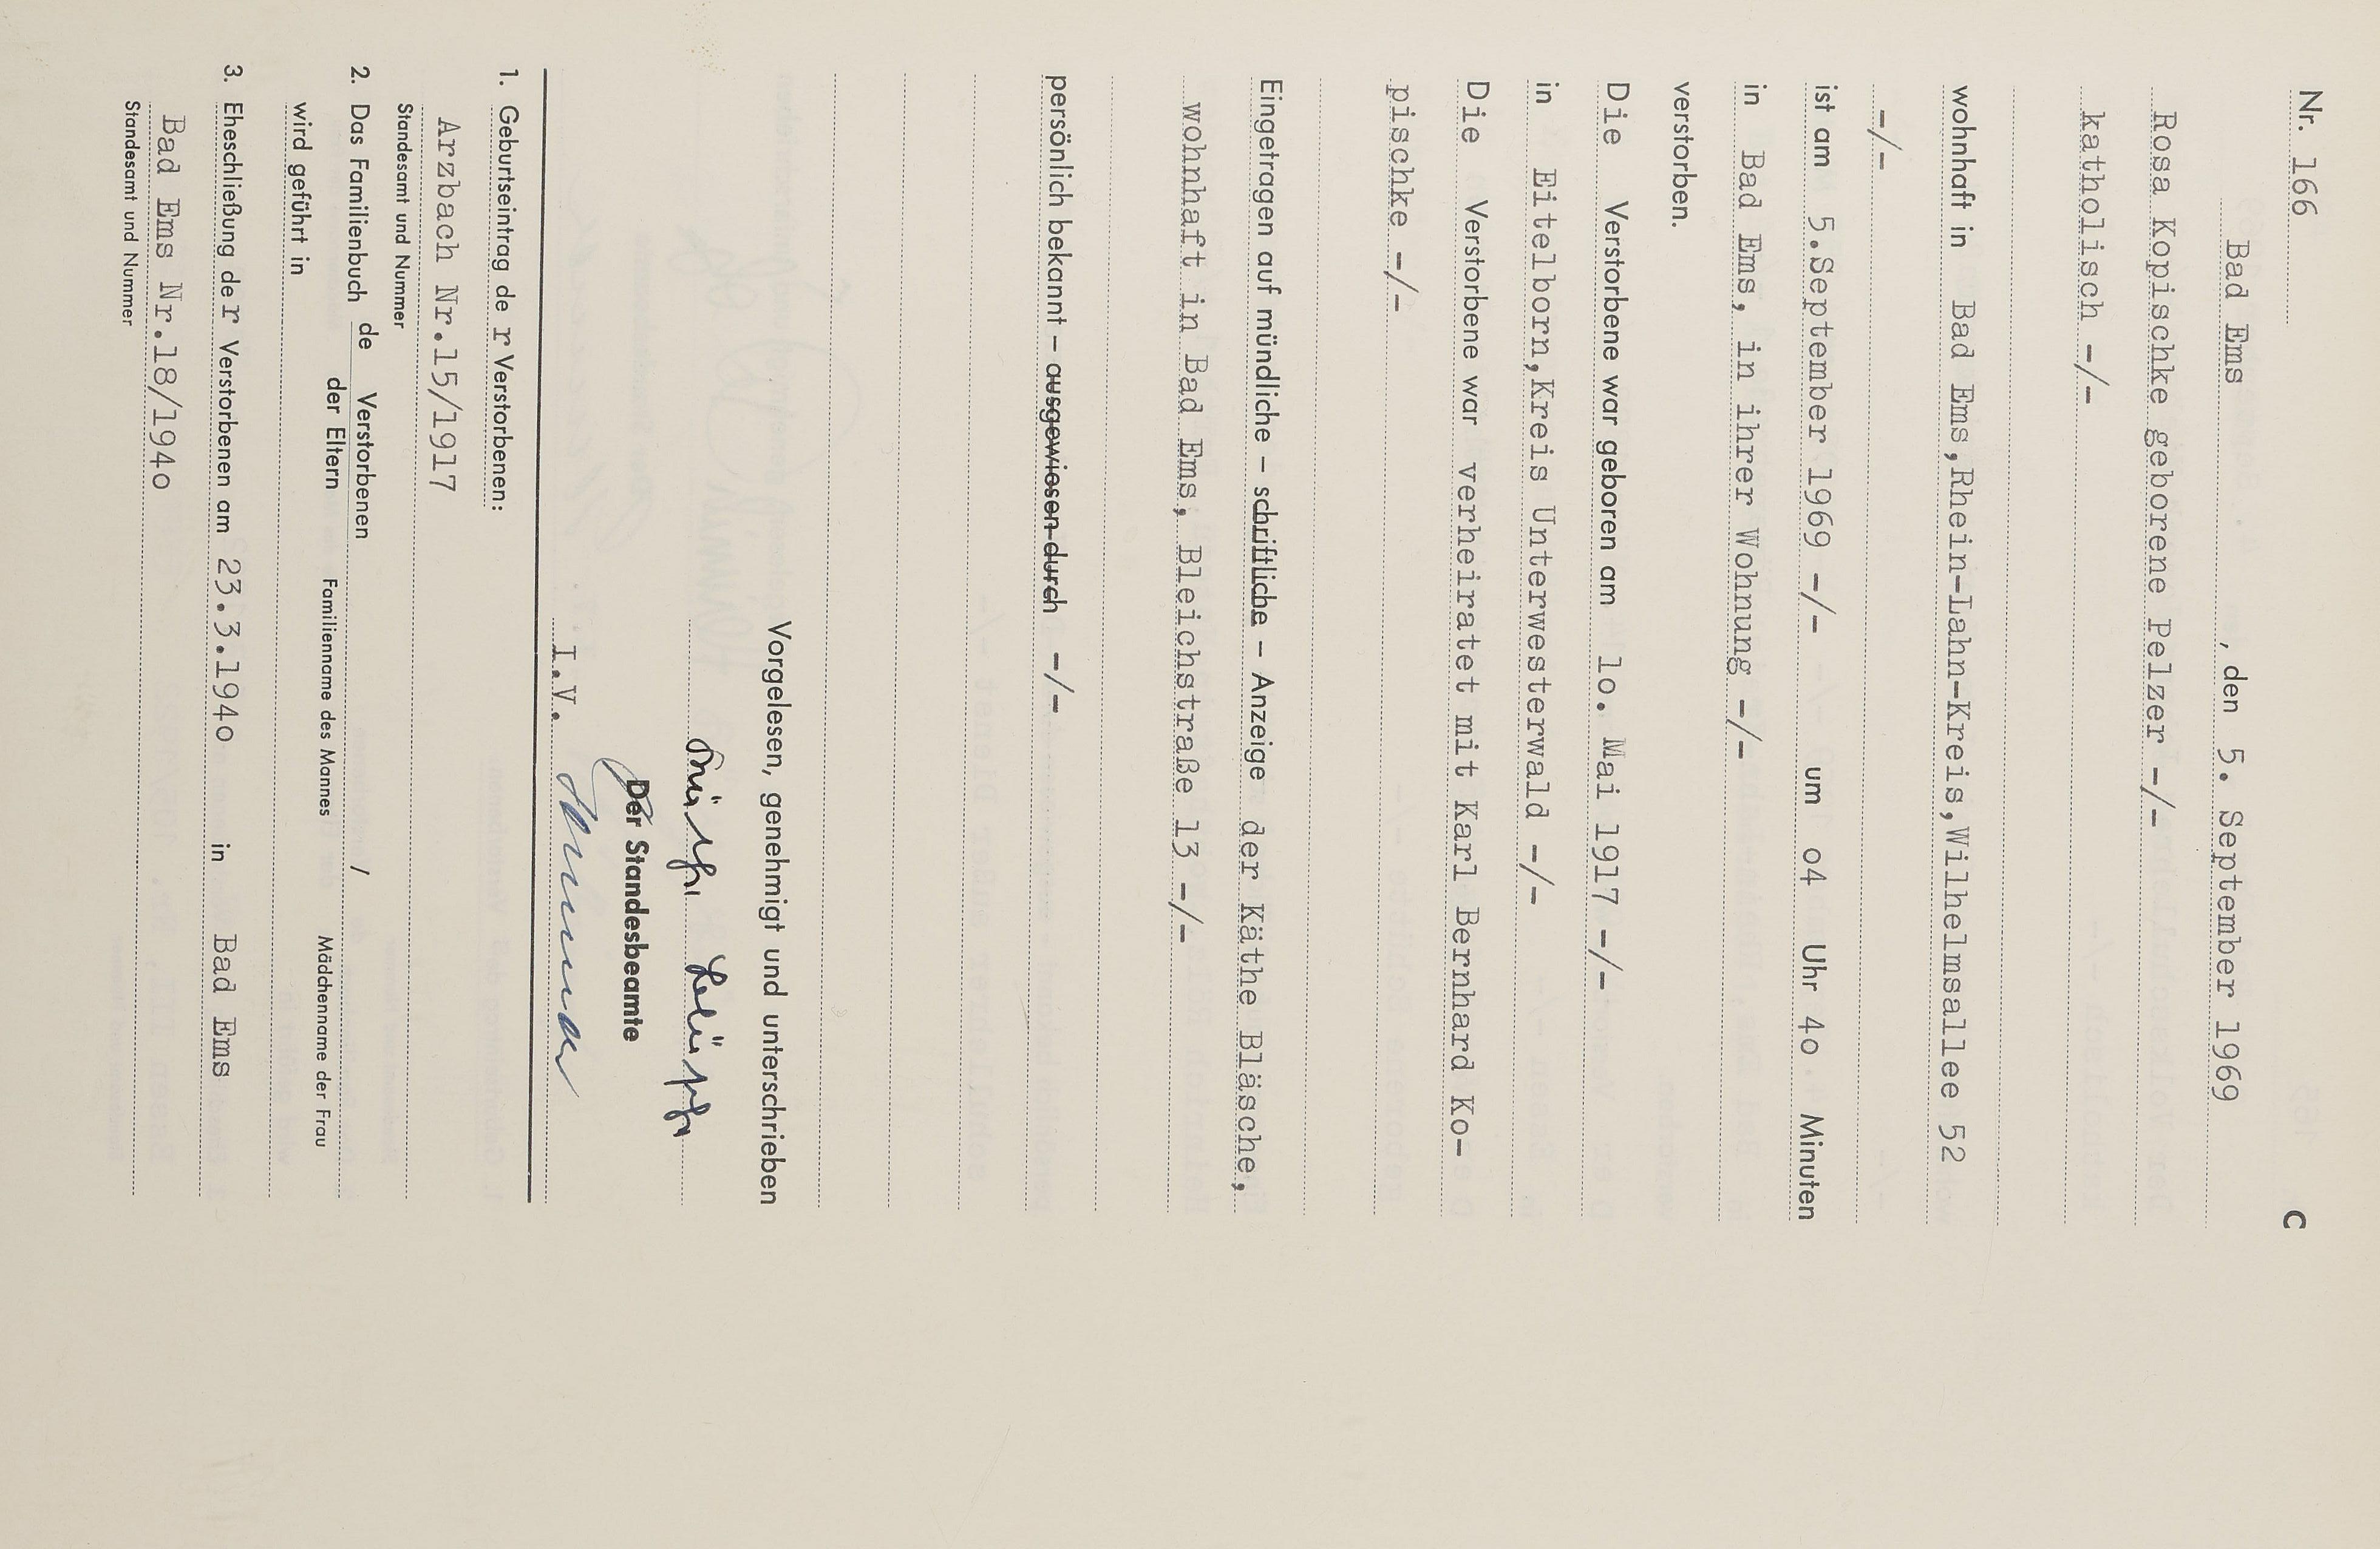 Nr. 166
C
Bad Ems , den 5. September 1969
Rosa Kopischke geborene Pelzer -/-
katholisch -/-
wohnhaft in Bad Ems,Rhein-Lahn-Kreis,Wilhelmsallee 52
-/-
ist am 5.September 1969 -/- um o4 Uhr 4o Minuten
in Bad Ems, in ihrer Wohnung -/-
verstorben.
Die Verstorbene war geboren am 1o. Mai 1917 -/-
in Eitelborn,Kreis Unterwesterwald -/-
Die Verstorbene war verheiratet mit Karl Bernhard Ko-
pischke -/-
Eingetragen auf mündliche – schriftliche – Anzeige der Käthe Bläsche,
wohnhaft in Bad Ems, Bleichstraße 13 -/-
persönlich bekannt – ausgewiesen durch -/-
Vorgelesen, genehmigt und unterschrieben
Der Standesbeamte
I.V.
1. Geburtseintrag de r Verstorbenen:
Arzbach Nr.15/1917
Standesamt und Nummer
2. Das Familienbuch de Verstorbenen /
der Eltern Familienname des Mannes Mädchenname der Frau
wird geführt in
3. Eheschließung de r Verstorbenen am 23.3.194o in Bad Ems
Bad Ems Nr.18/194o
Standesamt und Nummer